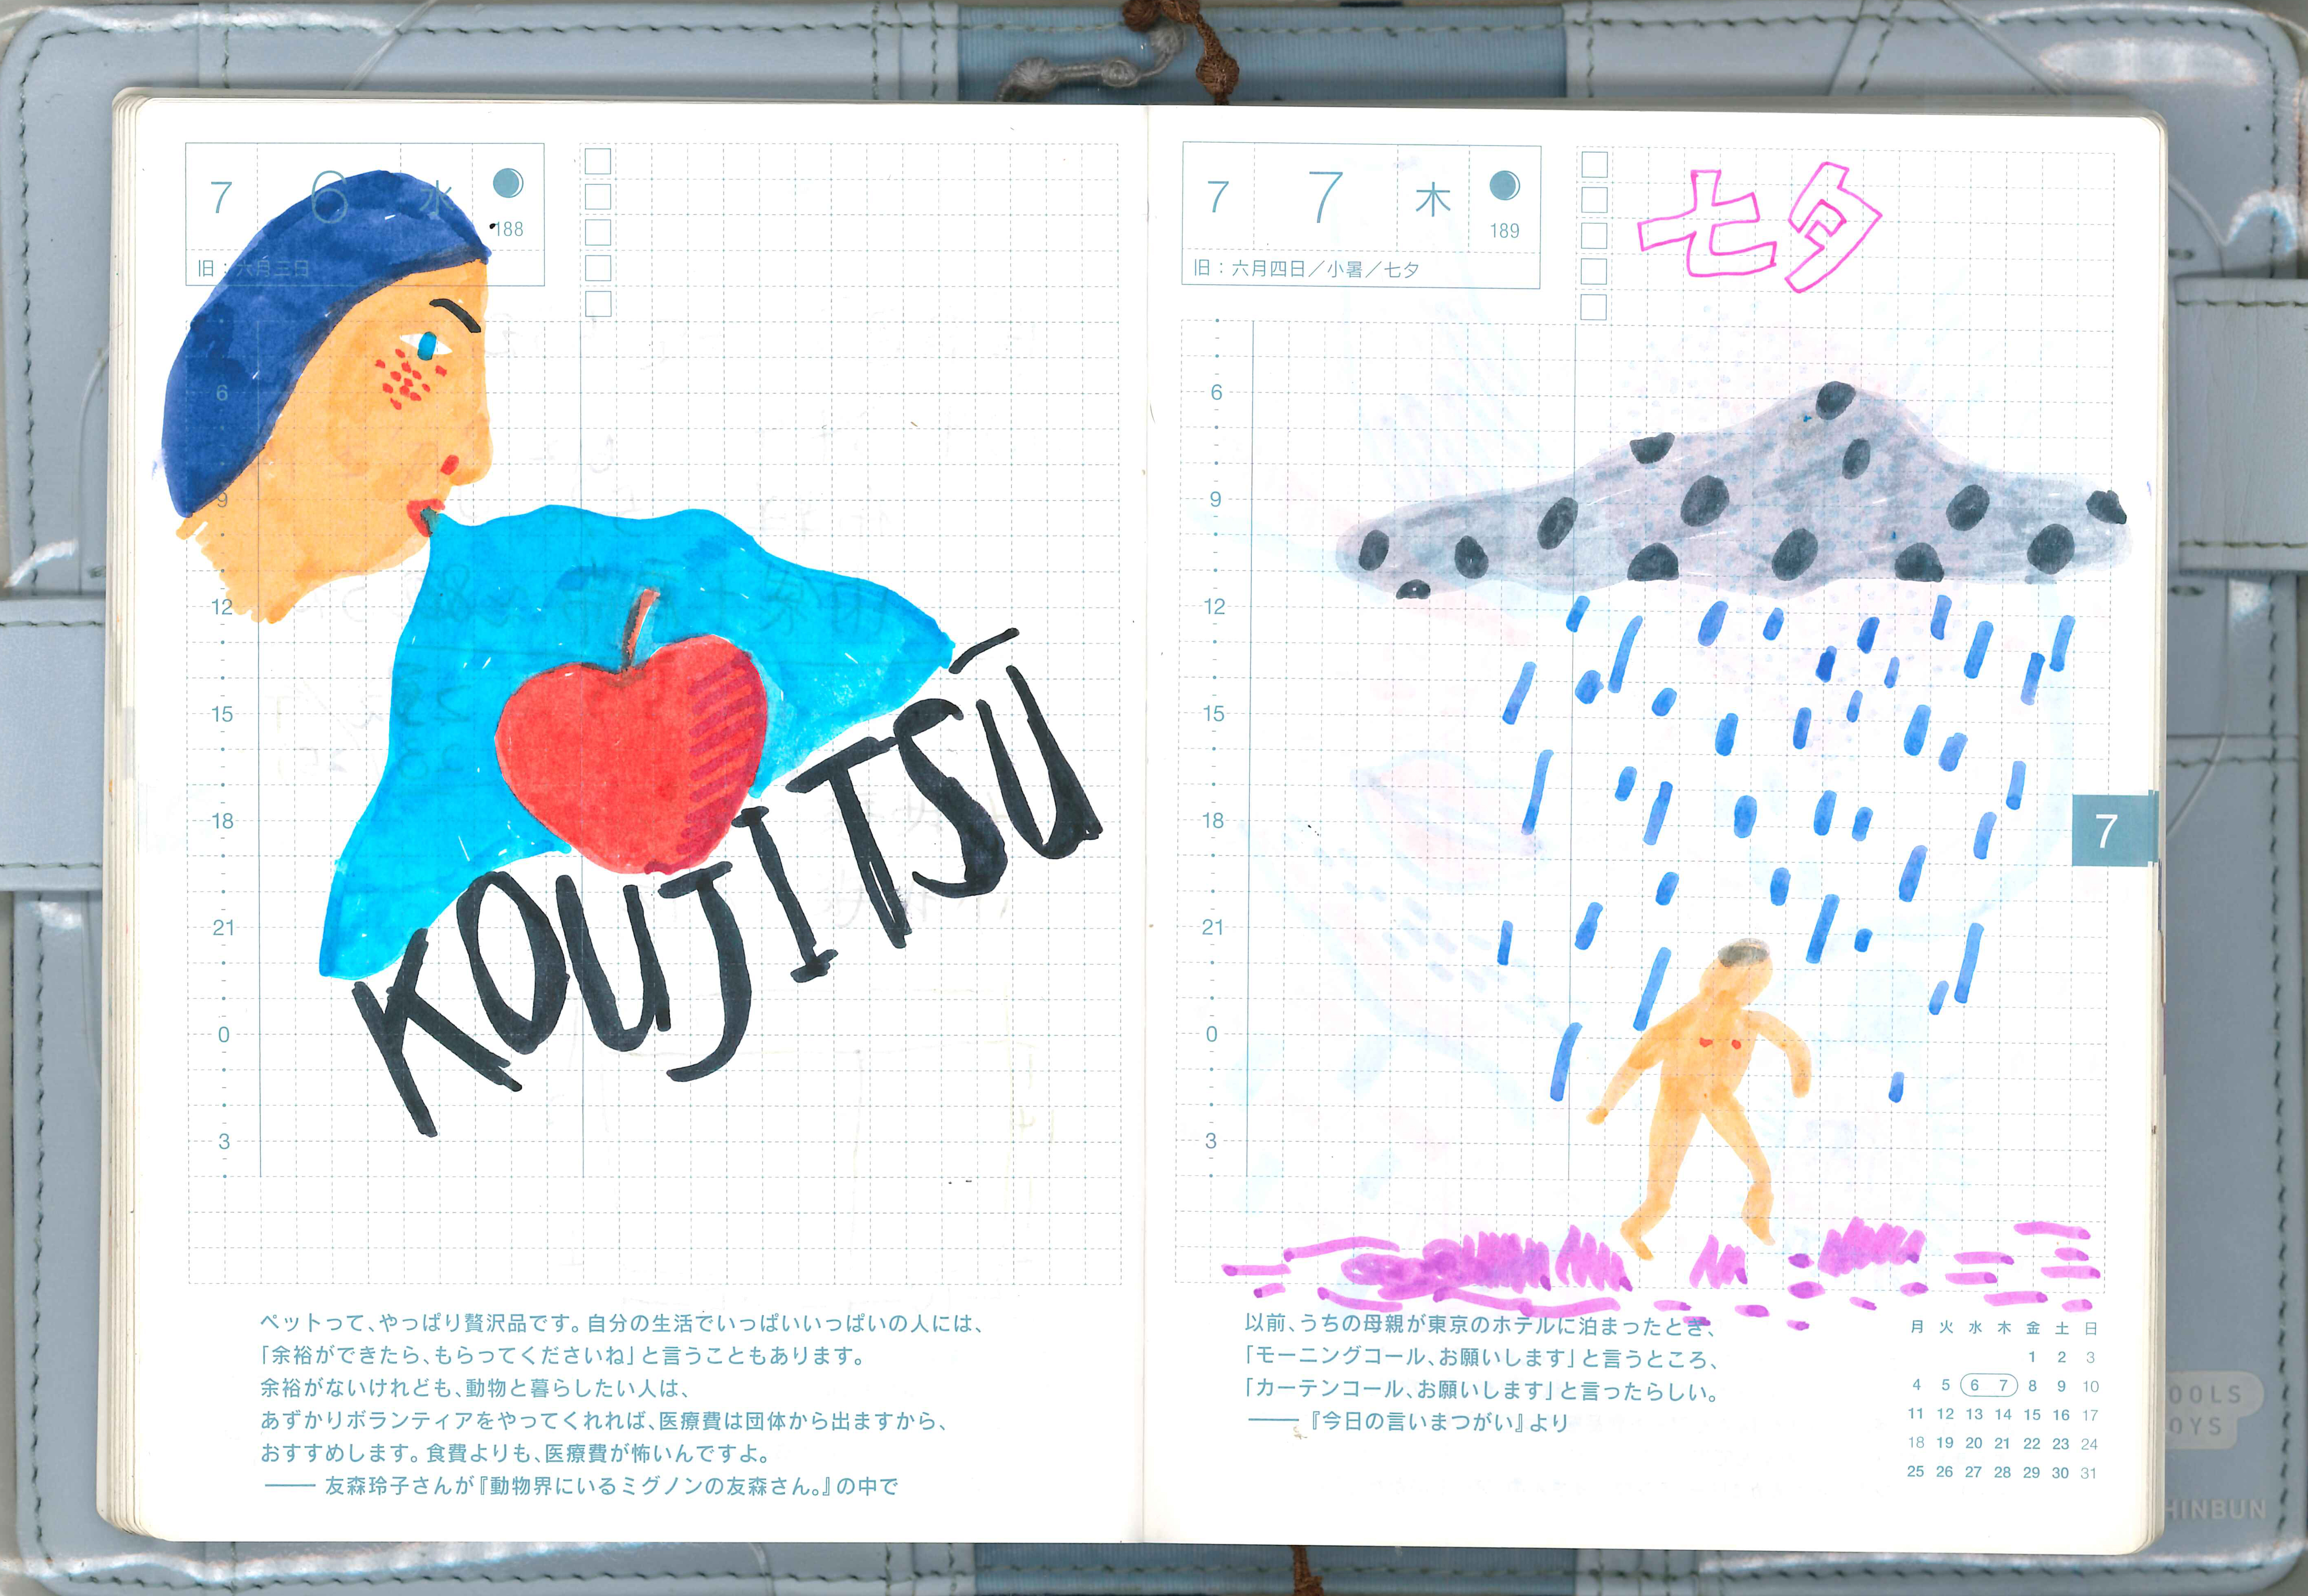 7 6 水
188
旧：六月三日
6
9
12
15
18
21
0
3
KOUJITSU
ペットって、やっぱり贅沢品です。自分の生活でいっぱいいっぱいの人には、
「余裕ができたら、もらってくださいね」と言うこともあります。
余裕がないけれども、動物と暮らしたい人は、
あずかりボランティアをやってくれれば、医療費は団体から出ますから、
おすすめします。食費よりも、医療費が怖いんですよ。
── 友森玲子さんが『動物界にいるミグノンの友森さん。』の中で
7 7 木
189
旧：六月四日／小暑／七夕
七夕
6
9
12
15
18
21
0
3
7
以前、うちの母親が東京のホテルに泊まったとき、
「モーニングコール、お願いします」と言うところ、
「カーテンコール、お願いします」と言ったらしい。
── 『今日の言いまつがい』より
月 火 水 木 金 土 日
1 2 3
4 5 6 7 8 9 10
11 12 13 14 15 16 17
18 19 20 21 22 23 24
25 26 27 28 29 30 31
OOLS
OYS
HINBUN